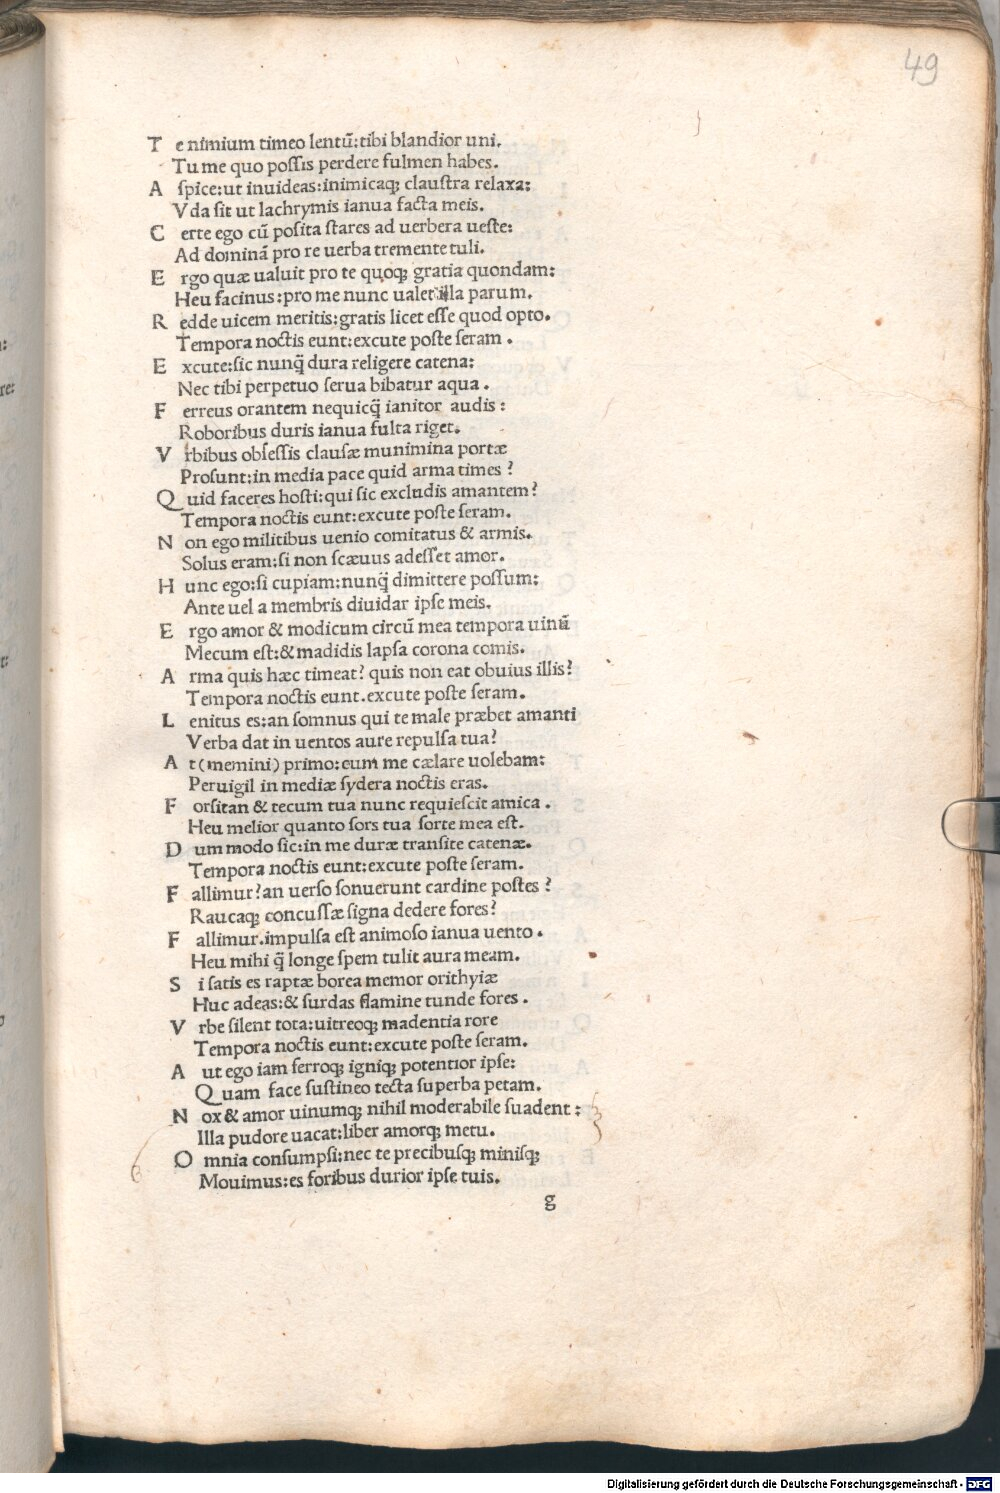 49
T e nimium timeo lentū:tibi blandior uni.
Tu me quo possis perdere fulmen habes.
A spice:ut inuideas:inimicaq; claustra relaxa:
Vda sit ut lachrymis ianua facta meis.
C erte ego cū posita stares ad uerbera ueste:
Ad dominā pro re uerba tremente tuli.
E rgo quæ ualuit pro te quoq; gratia quondam:
Heu facinus:pro me nunc ualet illa parum.
R edde uicem meritis:gratis licet esse quod opto.
Tempora noctis eunt:excute poste seram.
E xcute:sic nunq̄ dura religere catena:
Nec tibi perpetuo serua bibatur aqua.
F erreus orantem nequicq̄ ianitor audis:
Roboribus duris ianua fulta riget.
V rbibus obsessis clausæ munimina portæ
Prosunt:in media pace quid arma times?
Q uid faceres hosti:qui sic excludis amantem?
Tempora noctis eunt:excute poste seram.
N on ego militibus uenio comitatus & armis.
Solus eram:si non scæuus adesset amor.
H unc ego:si cupiam:nunq̄ dimittere possum:
Ante uel a membris diuidar ipse meis.
E rgo amor & modicum circū mea tempora uinū
Mecum est:& madidis lapsa corona comis.
A rma quis hæc timeat? quis non eat obuius illis?
Tempora noctis eunt.excute poste seram.
L enitus es:an somnus qui te male præbet amanti
Verba dat in uentos aure repulsa tua?
A t (memini) primo:cum me cælare uolebam:
Peruigil in mediæ sydera noctis eras.
F orsitan & tecum tua nunc requiescit amica.
Heu melior quanto sors tua sorte mea est.
D um modo sic:in me duræ transite catenæ.
Tempora noctis eunt:excute poste seram.
F allimur?an uerso sonuerunt cardine postes?
Raucaq; concussæ signa dedere fores?
F allimur.impulsa est animoso ianua uento.
Heu mihi q̄ longe spem tulit aura meam.
S i satis es raptæ borea memor orithyiæ
Huc adeas:& surdas flamine tunde fores.
V rbe silent tota:uitreoq; madentia rore
Tempora noctis eunt:excute poste seram.
A ut ego iam ferroq; igniq; potentior ipse:
Quam face sustineo tecta superba petam.
N ox & amor uinumq; nihil moderabile suadent:
Illa pudore uacat:liber amorq; metu.
O mnia consumpsi:nec te precibusq; minisq;
Mouimus:es foribus durior ipse tuis.
g
Digitalisierung gefördert durch die Deutsche Forschungsgemeinschaft - DFG